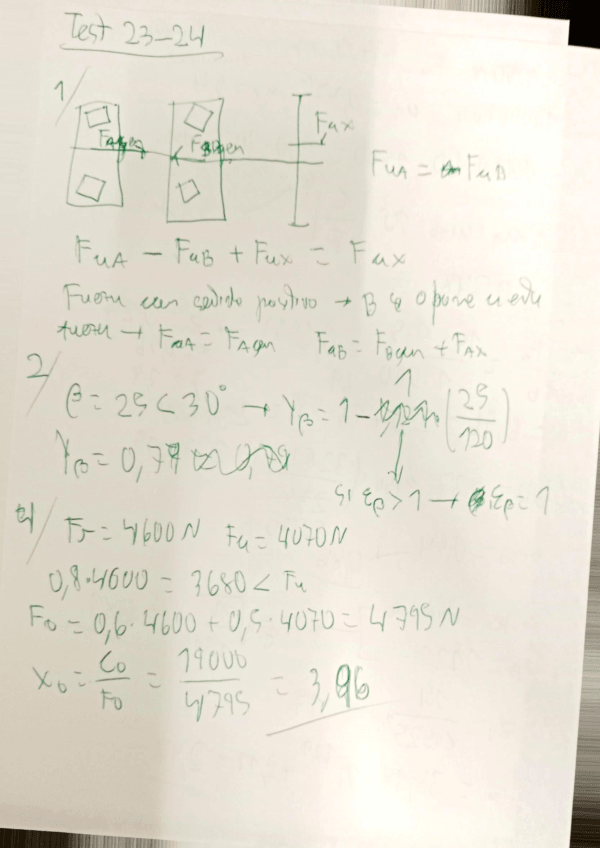 Test 23-24
1/
Fax
FaA = FaB
FaA - FaB + Fax = Fax
Fuerza con sentido positivo → B se opone a esta
fuerza → FaA = FAgen FaB = FBgen + FAx
2/
β = 25 < 30° → Yβ = 1 - 1 (25/120)
Yβ = 0,79
si εβ > 1 → εβ = 1
4/ Fr = 4600 N Fa = 4070 N
0,8·4600 = 3680 < Fa
F0 = 0,6·4600 + 0,5·4070 = 4795 N
X0 = C0/F0 = 19000/4795 = 3,96